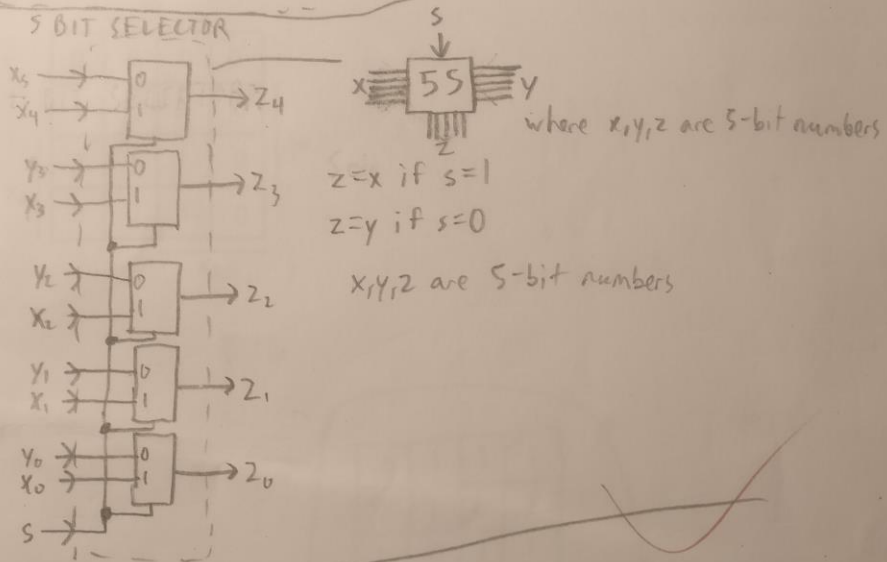 5 BIT SELECTOR
X5 0
X4 1
Z4
Y3 0
X3 1
Z3
Y2 0
X2 1
Z2
Y1 0
X1 1
Z1
Y0 0
X0 1
Z0
S
S
X 5S Y
Z
where x,y,z are 5-bit numbers
z=x if s=1
z=y if s=0
x,y,z are 5-bit numbers